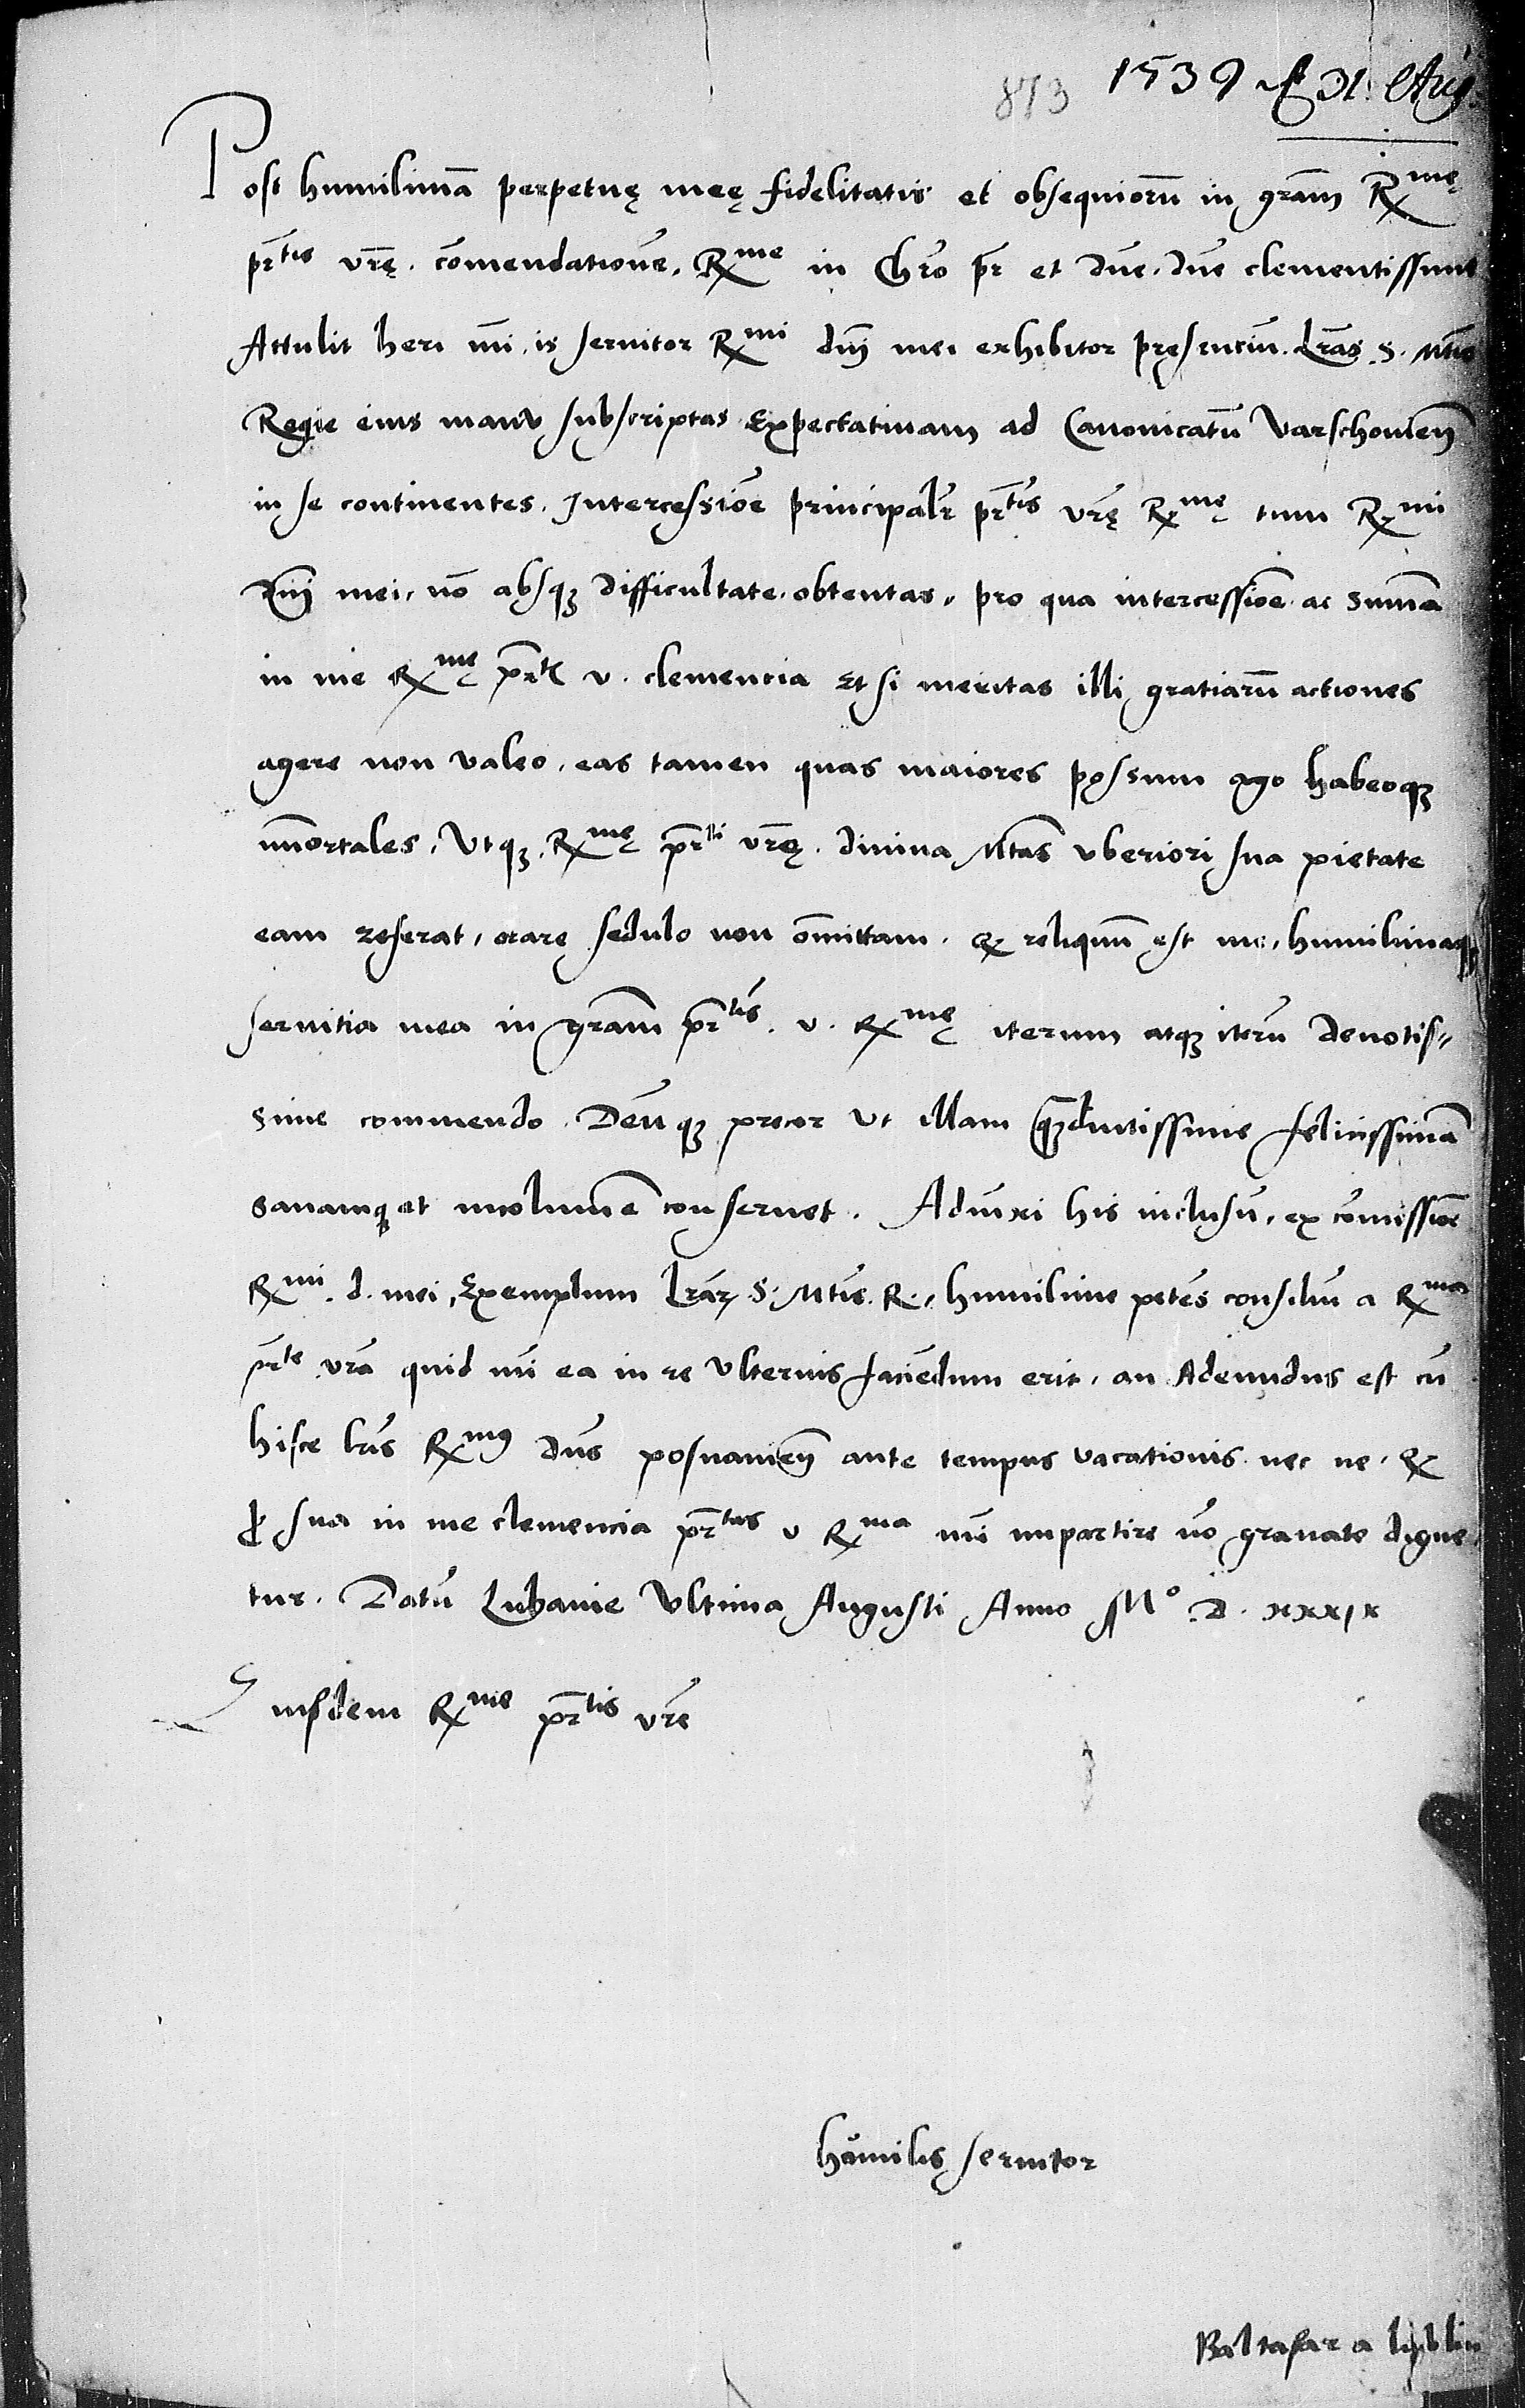 873 1539 d 31. Aug.
Post humilimā perpetuę meę fidelitatis et obsequiorū in grām Rmę
prtis vrę. cōmendationē. Rme in Chrō pr et dne. dne clementissime
Attulit heri mi. is seruitor Rmi dnj mei exhibitor pręsenciū. Lrās S. Mtis
Regie eius manu subscriptas Expectatiuam ad Canonicatū Varschouien
in se continentes. Intercessiōe principalr prtis vrę Rmę tum Rmi
Dnj mei, nō absq3 difficultate obtentas, pro qua intercessiōe ac sūmā
in me Rmę prtis v. clemencia Et si meritas illi gratiarū actiones
agere non valeo, eas tamen quas maiores possum ago habeoq3
īmortales, Vtq3. Rmę prti vrę. diuina Mtas vberiori sua pietate
eam referat, orare sedulo non omittam. Qd reliquū est me, humilimaq3
seruitia mea in grām prtis. v. Rmę iterum atq3 iterū deuotis-
sime commendo. Deūq3 precor vt illam q3diutissime felicissimā
sanamq3 et incolumē conseruet. Adiūxi his inclusū, ex cōmissiōe
Rmi. d. mei, Exemplum Lrār S. Mtis. R., humilime petēs consiliū a Rma
prte vrā quid mi ea in re vlterius faciēdum erit, an Adeundus est cū
hisce lrīs Rmus dns posnanien ante tempus vacationis nec ne. Qd
p sua in me clemencia prtas v Rma mi impartire nō grauate digne-
tur. Datū Lubanie Vltima Augusti Anno Mo. D. xxxix
Eiusdem Rme prtis vre
humilis seruitor
Baltasar a lublin